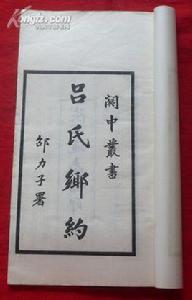 關中叢書
呂氏鄉約
邵力子署
Kongfz.com